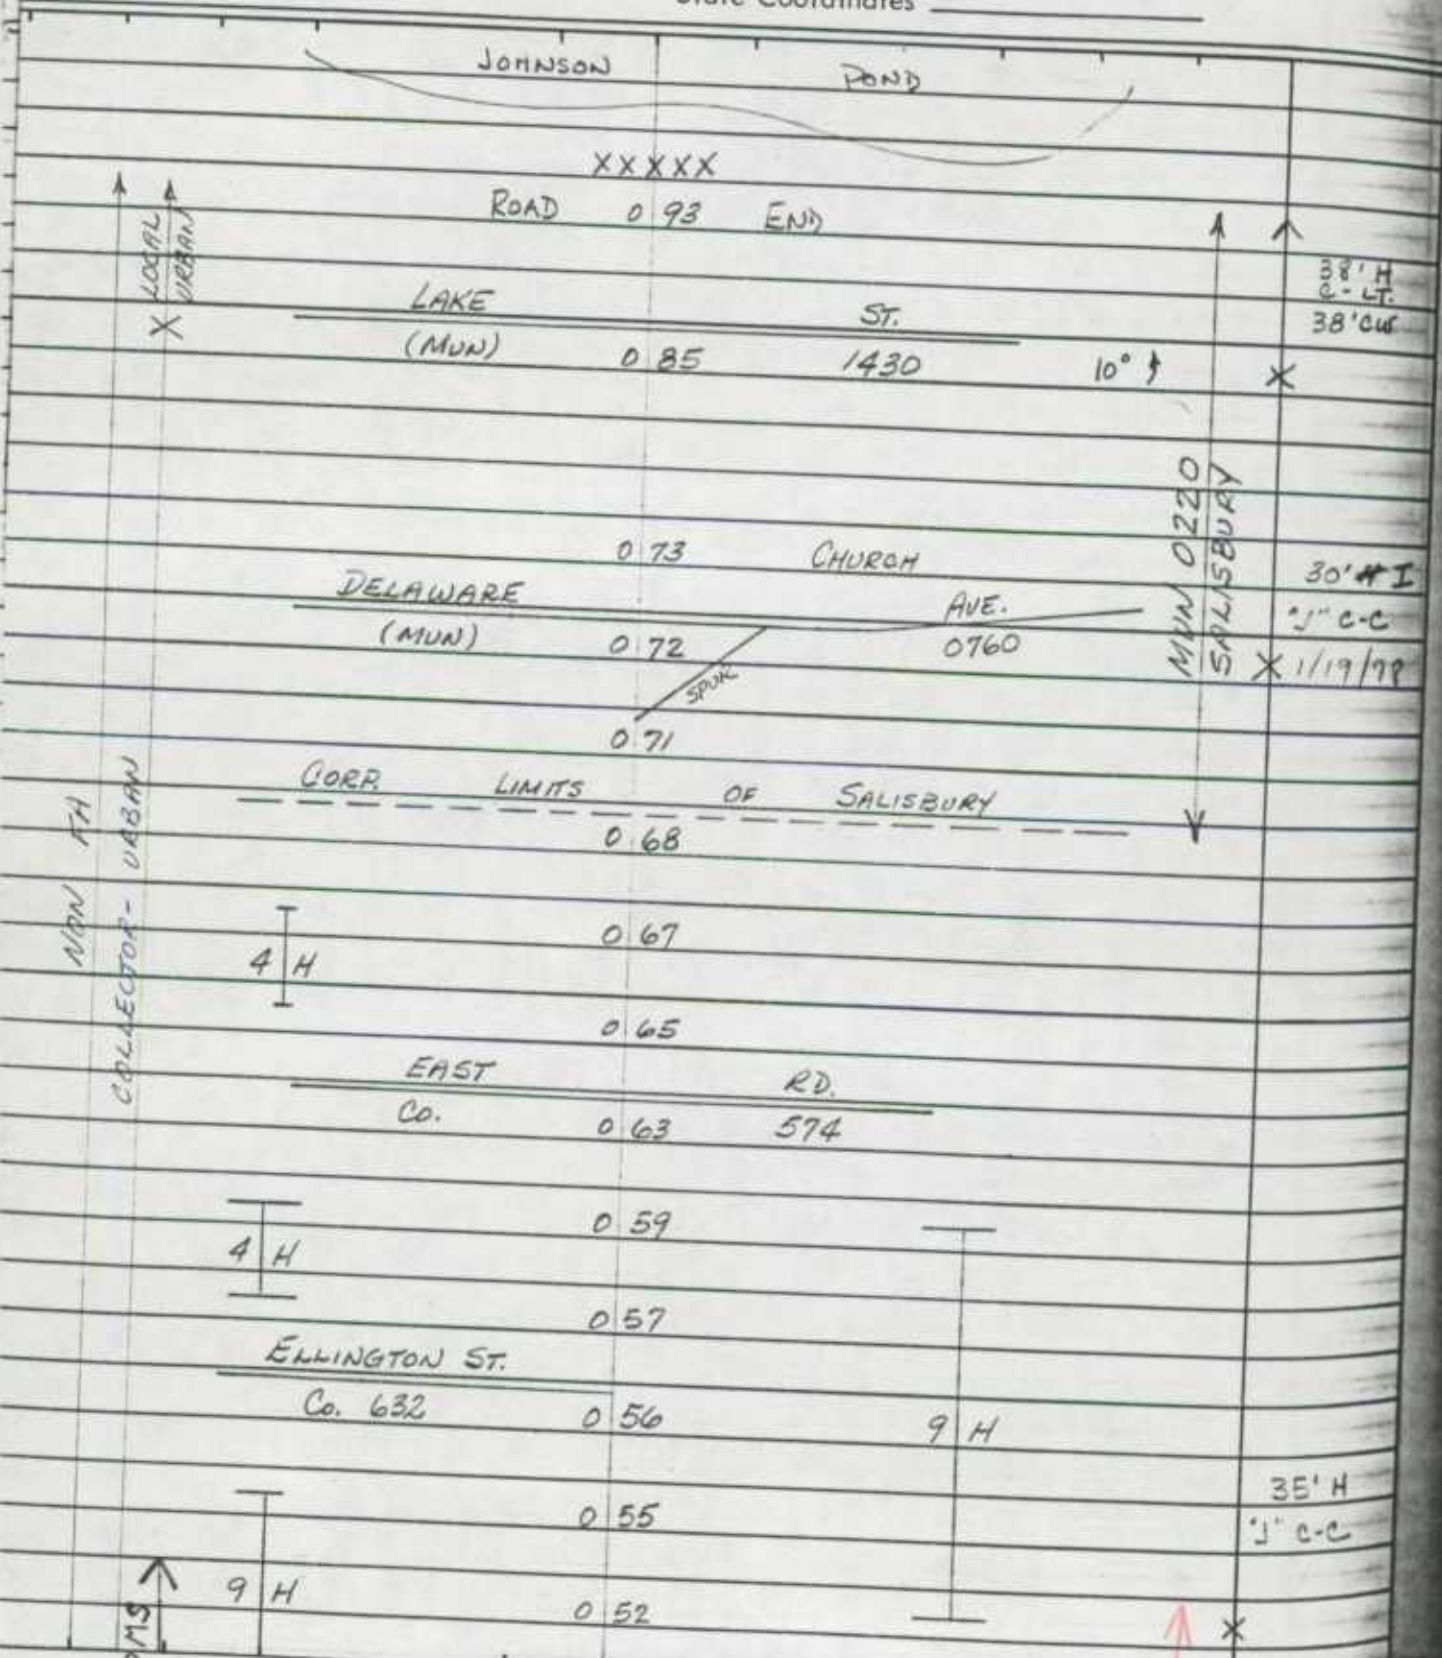 State Coordinates
JOHNSON POND
XXXXX
ROAD 0 93 END
LOCAL
URBAN
38' H
C-LT.
38' CW
LAKE ST.
(MUN) 0 85 1430 10°
X
X
MUN 0220
SALISBURY
0 73 CHURCH
30' H I
"J" C-C
X 1/19/78
DELAWARE AVE.
(MUN) 0 72 0760
SPUR
0 71
CORP. LIMITS OF SALISBURY
0 68
NON FA
COLLECTOR - URBAN
0 67
4 H
0 65
EAST RD.
Co. 0 63 574
0 59
4 H
0 57
ELLINGTON ST.
Co. 632 0 56
9 H
35' H
"J" C-C
0 55
9 H
0 52
X